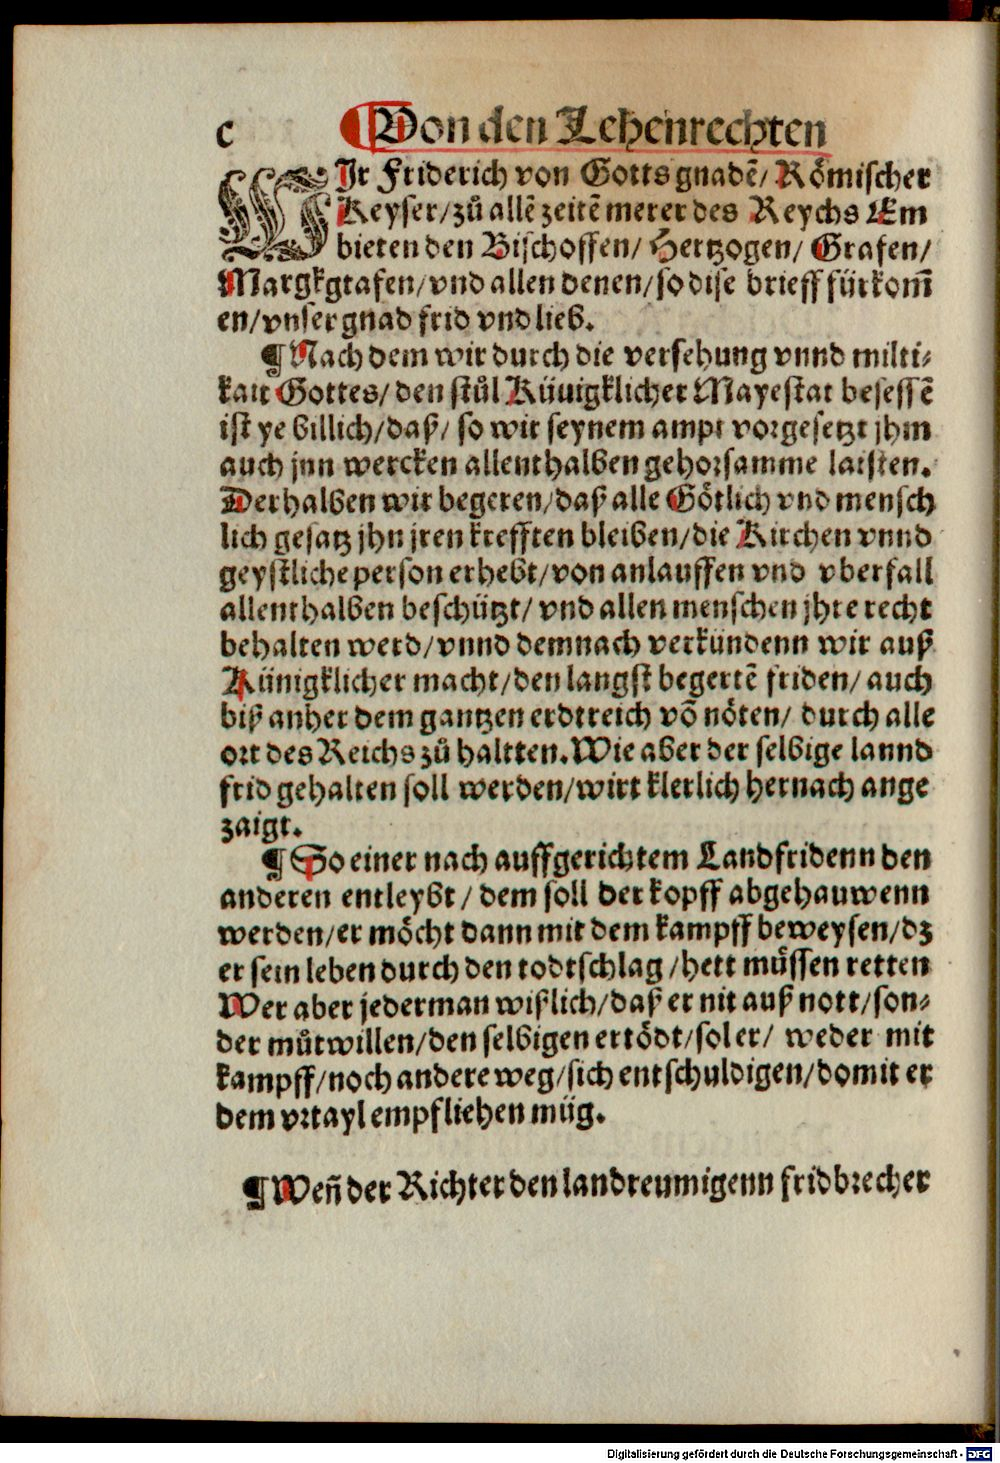 c Von den Lehenrechten
WIr Friderich von Gotts gnadē/ Römischer
Keyser/zů allē zeitē merer des Reychs Em
bieten den Bischoffen/ Hertzogen/ Grafen/
Margkgrafen/vnd allen denen/so dise brieff fürkom̄
en/vnser gnad frid vnd lieb.
¶ Nach dem wir durch die versehung vnnd milti-
kait Gottes/ den stůl Küuigklicher Mayestat besessē
ist ye billich/daß/ so wir seynem ampt vorgesetzt jhm
auch jnn wercken allenthalben gehorsamme laisten.
Derhalben wir begeren/daß alle Götlich vnd mensch
lich gesatz jhn jren krefften bleiben/die Kirchen vnnd
geystliche person erhebt/von anlauffen vnd vberfall
allenthalben beschützt/ vnd allen menschen jhre recht
behalten werd/vnnd demnach verkündenn wir auß
Künigklicher macht/den langst begertē friden/ auch
biß anher dem gantzen erdtreich vō nöten/ durch alle
ort des Reichs zů haltten. Wie aber der selbige lannd
frid gehalten soll werden/wirt klerlich hernach ange
zaigt.
¶ So einer nach auffgerichtem Landfridenn den
anderen entleybt/ dem soll der kopff abgehauwenn
werden/er möcht dann mit dem kampff beweysen/dz
er sein leben durch den todtschlag/hett müssen retten
Wer aber jederman wißlich/daß er nit auß nott/son-
der můtwillen/den selbigen ertödt/sol er/ weder mit
kampff/noch andere weg/sich entschuldigen/domit er
dem vrtayl empfliehen müg.
¶ Wen̄ der Richter den landreumigenn fridbrecher
Digitalisierung gefördert durch die Deutsche Forschungsgemeinschaft - DFG